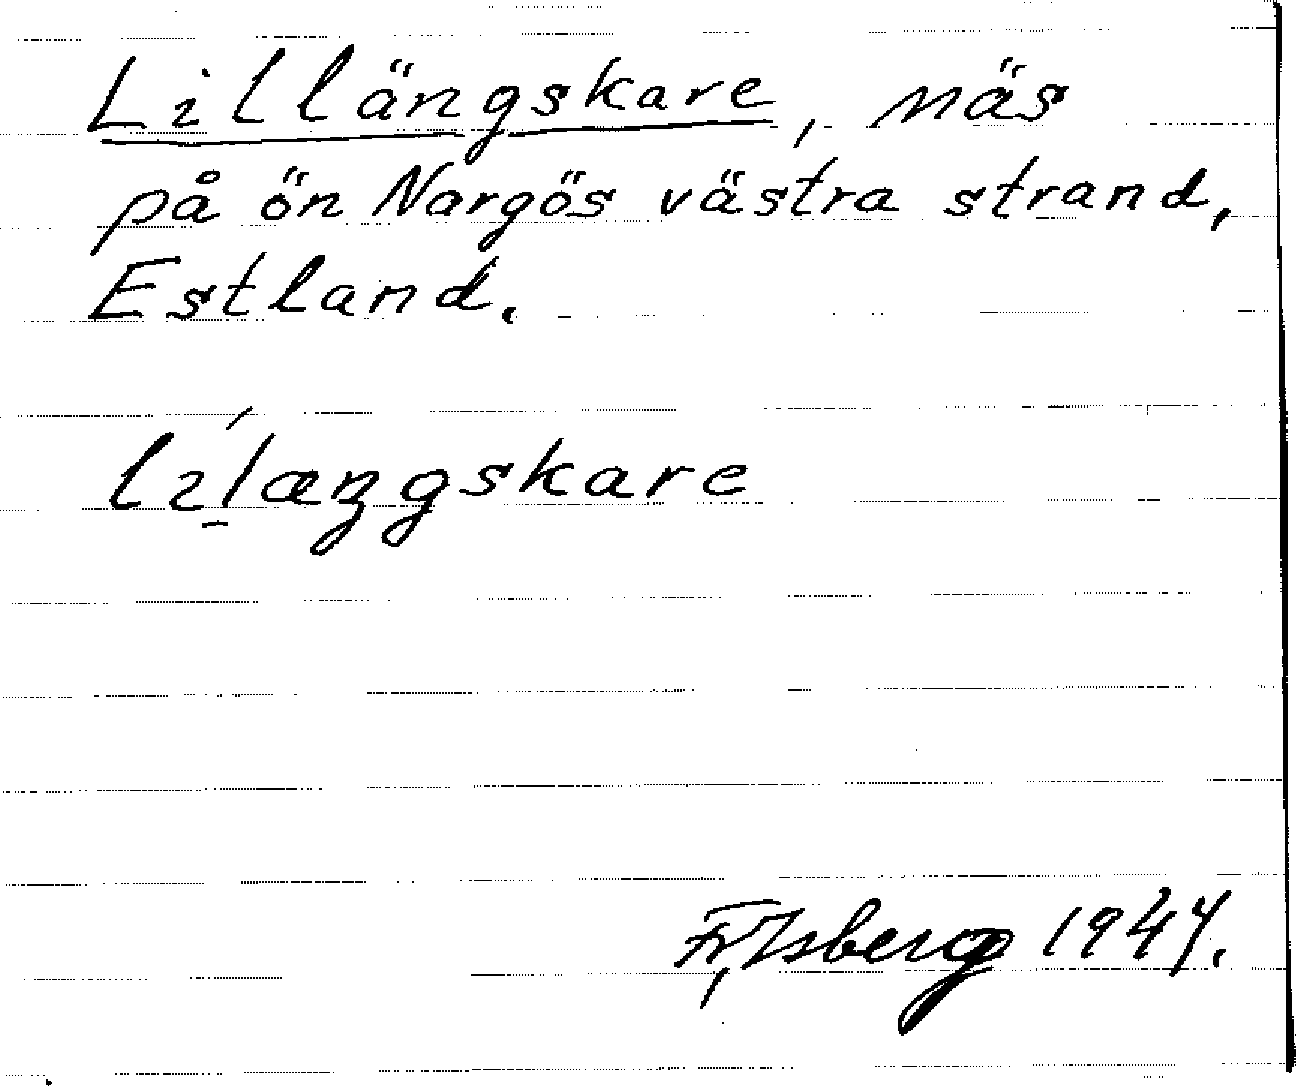 Lillängskare, näs
på ön Nargös västra strand,
Estland.
li̱ĺæŋgskare
F. Isberg 1947.